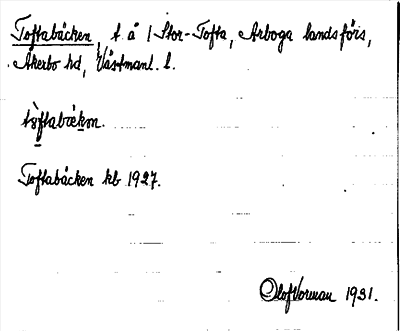 Toftabäcken, t. å / Stor-Tofta, Arboga landsförs,
Åkerbo hd, Västmanl. l.
tòftabækən.
Toftabäcken kb 1927.
Olof Vorman 1931.